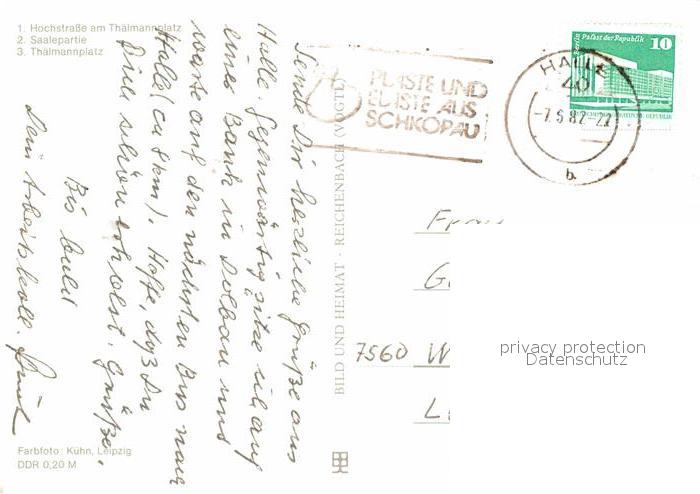 1. Hochstraße am Thälmannplatz
2. Saalepartie
3. Thälmannplatz
Sende Dir herzliche Grüße aus
Halle. Gegenwärtig sitze ich auf
einer Bank in Dölbau und
warte auf den nächsten Bus nach
Halle (ca 8 km). Hoffe, daß Du
Dich schön erholst. Grüße.
Bis bald
Dein Arbeitskoll.
Farbfoto: Kühn, Leipzig
DDR 0,20 M
BILD UND HEIMAT · REICHENBACH (VOGTL)
PLASTE UND
ELASTE AUS
SCHKOPAU
HALLE
40
-7.6.82-22
b
Berlin Palast der Republik 10
7560 W
privacy protection
Datenschutz